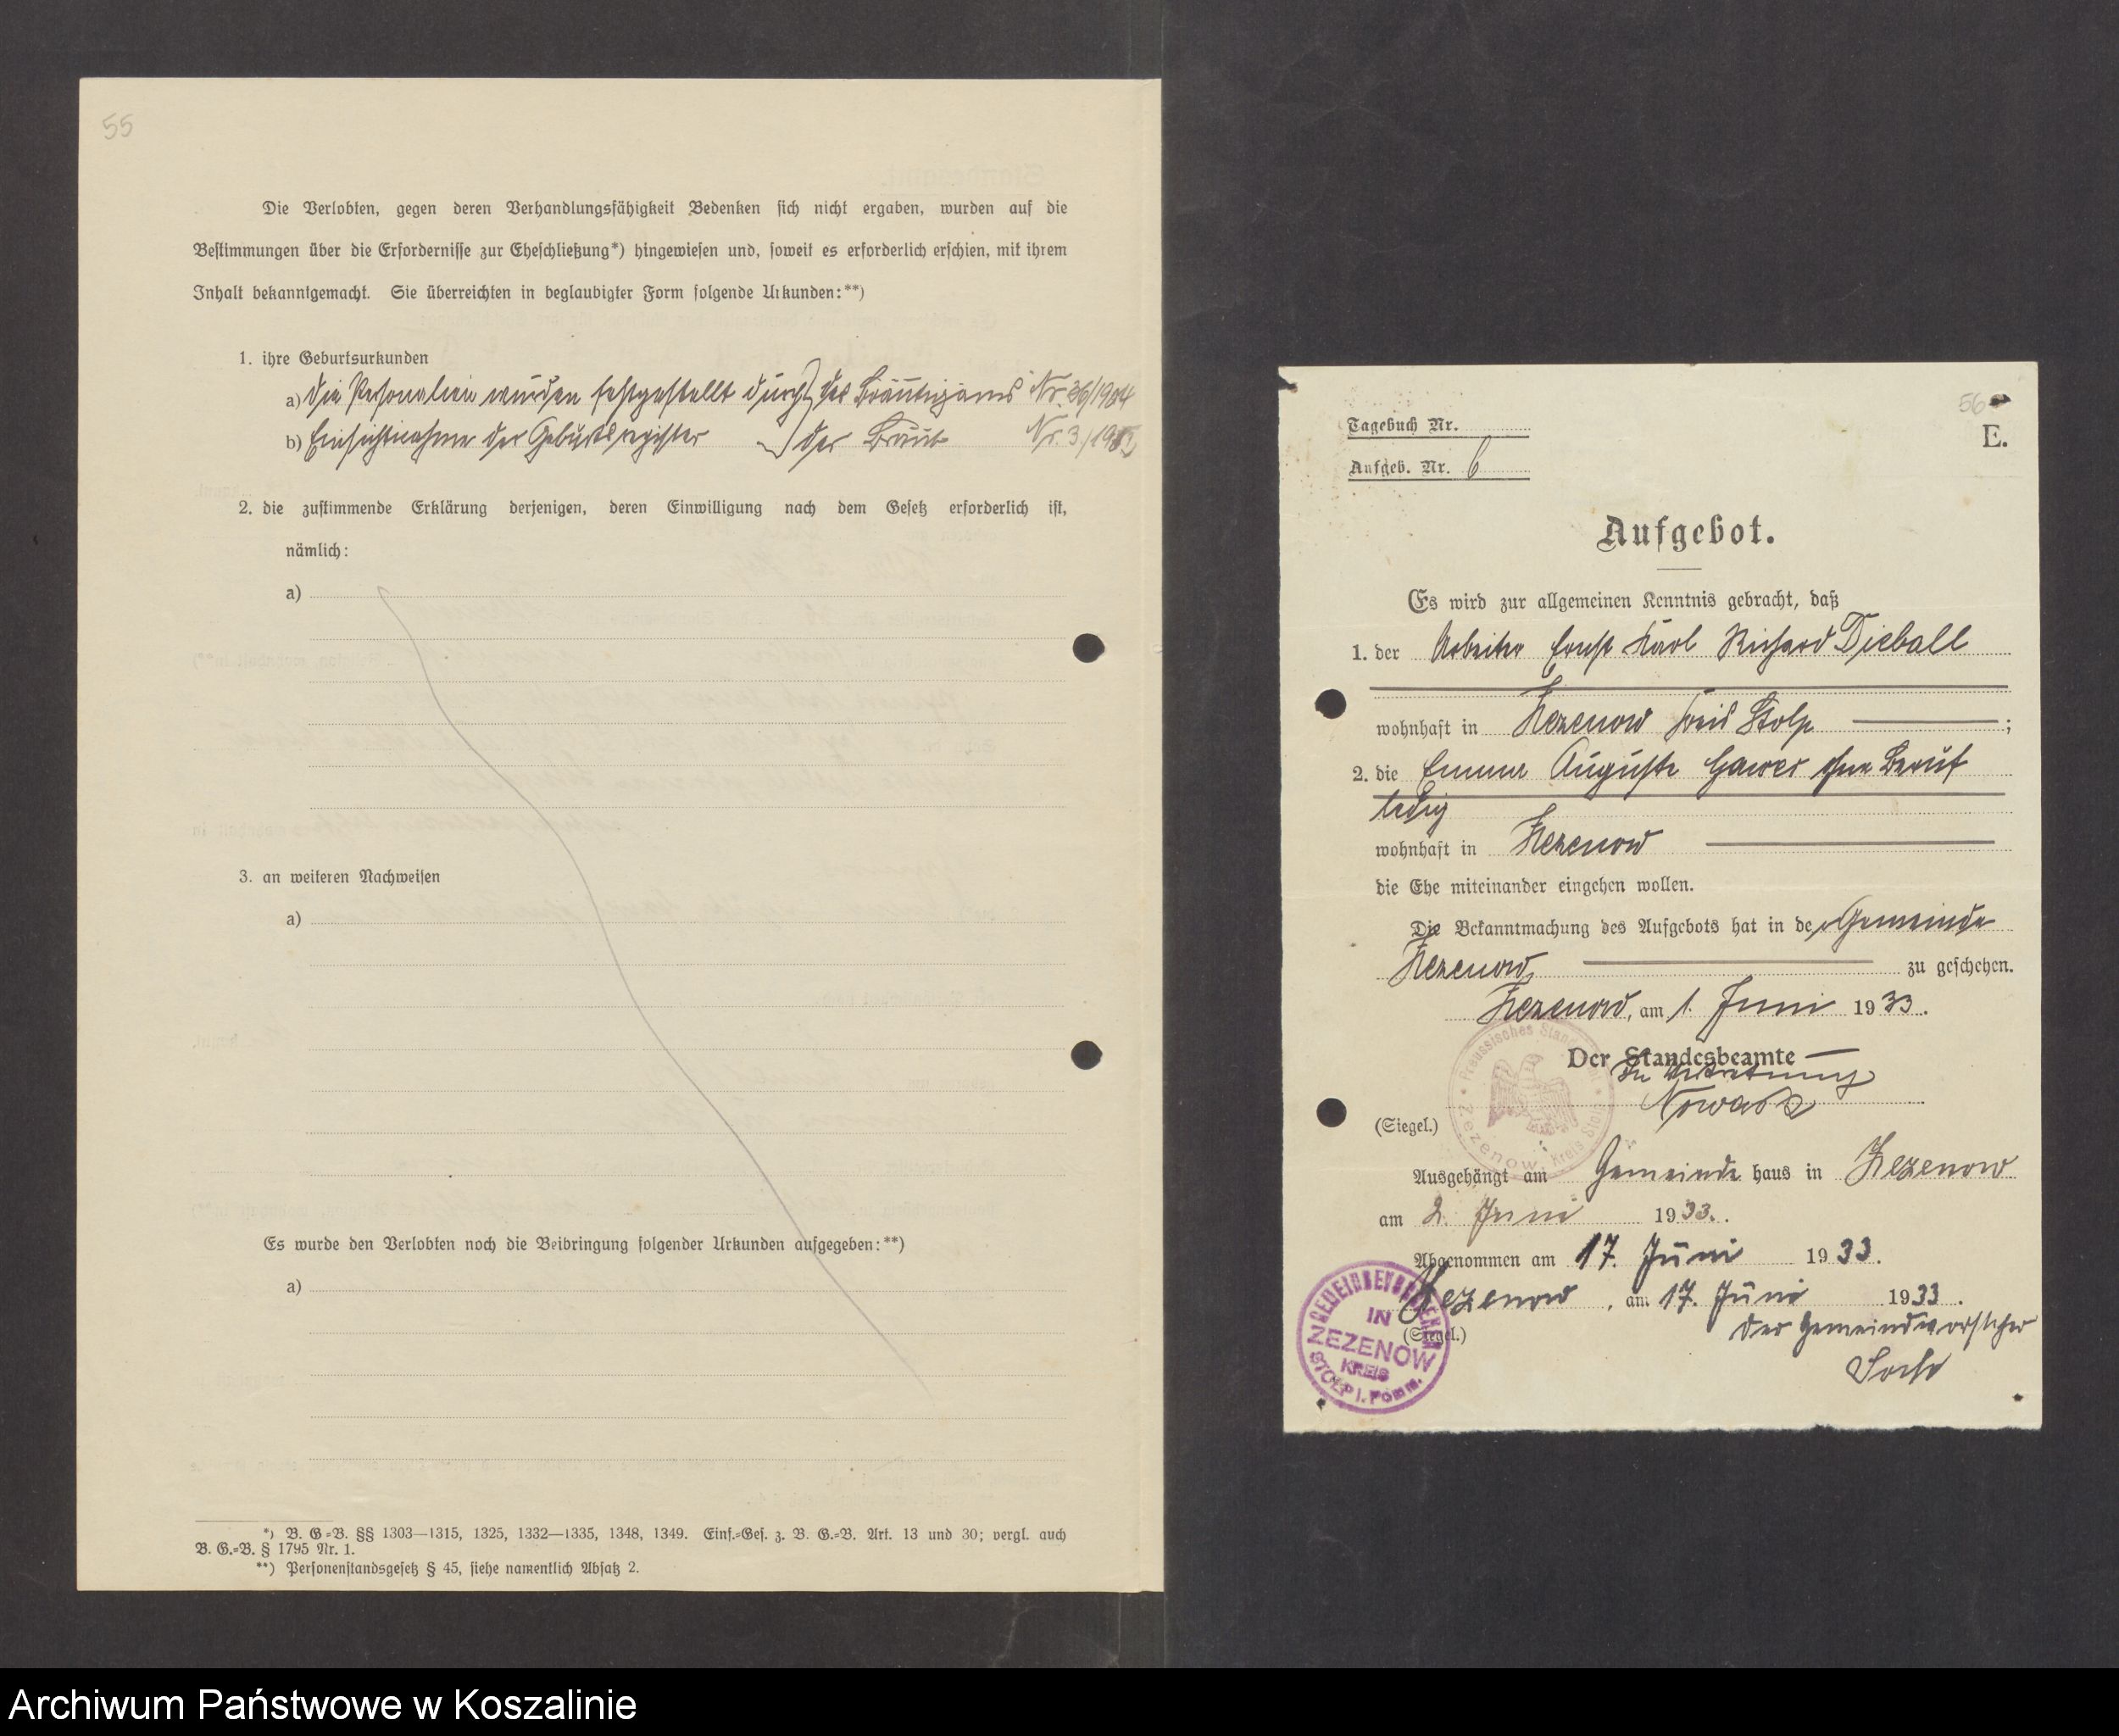 55
Die Verlobten, gegen deren Verhandlungsfähigkeit Bedenken sich nicht ergaben, wurden auf die
Bestimmungen über die Erfordernisse zur Eheschließung*) hingewiesen und, soweit es erforderlich erschien, mit ihrem
Inhalt bekanntgemacht. Sie überreichten in beglaubigter Form folgende Urkunden:**)
1. ihre Geburtsurkunden
a) Die Personalien wurden festgestellt durch des Bräutigams Nr. 26/1904
b) Einsichtnahme der Geburtsregister der Braut Nr. 3/
2. die zustimmende Erklärung derjenigen, deren Einwilligung nach dem Gesetz erforderlich ist,
nämlich:
a)
3. an weiteren Nachweisen
a)
Es wurde den Verlobten noch die Beibringung folgender Urkunden aufgegeben:**)
a)
*) B. G=B. §§ 1303—1315, 1325, 1332—1335, 1348, 1349. Einf.=Ges. z. B. G.=B. Art. 13 und 30; vergl. auch
B. G.=B. § 1795 Nr. 1.
**) Personenstandsgesetz § 45, siehe namentlich Absatz 2.
56
E.
Tagebuch Nr.
Aufgeb. Nr. 6
Aufgebot.
Es wird zur allgemeinen Kenntnis gebracht, daß
1. der Arbeiter Ernst Karl Richard Dieball
wohnhaft in Zezenow Kreis Stolp ;
2. die Emma Auguste Gawer ohne Beruf
ledig
wohnhaft in Zezenow
die Ehe miteinander eingehen wollen.
Die Bekanntmachung des Aufgebots hat in der Gemeinde
Zezenow zu geschehen.
Zezenow, am 1. Juni 1933.
Preussisches Standesamt Zezenow, Kreis Stolp
Der Standesbeamte
In Vertretung
Nowack
(Siegel.)
Ausgehängt am Gemeinde haus in Zezenow
am 2. Juni 1933.
Abgenommen am 17. Juni 1933.
Zezenow, am 17. Juni 1933.
(Siegel.)
GEMEINDEVORSTEHER
IN
ZEZENOW
KREIS
STOLP i. Pomm.
Der Gemeindevorsteher
Archiwum Państwowe w Koszalinie